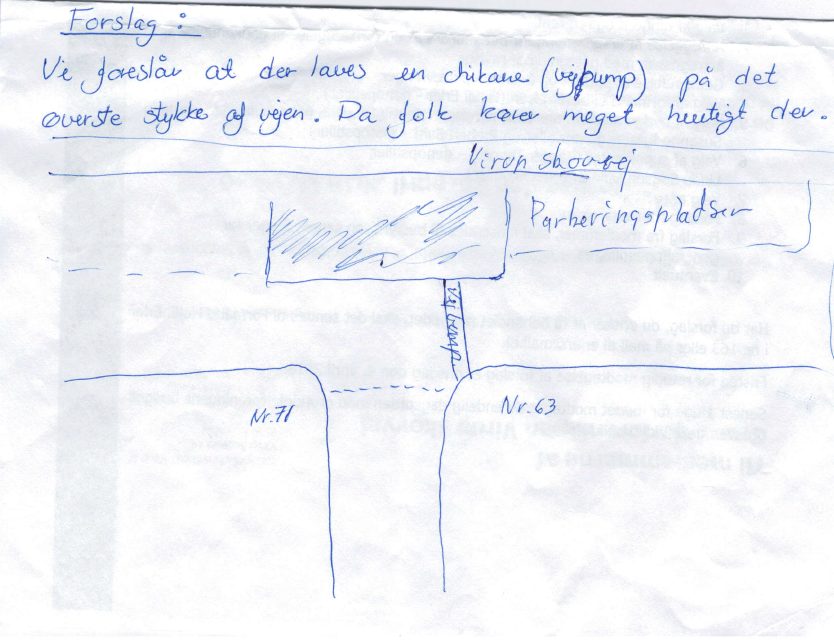 Forslag :
Vi foreslår at der laves en chikane (vejbump) på det
øverste stykke af vejen. Da folk kører meget hurtigt der.
Virum
Parkeringspladser
Vejbump
Nr. 71
Nr. 63